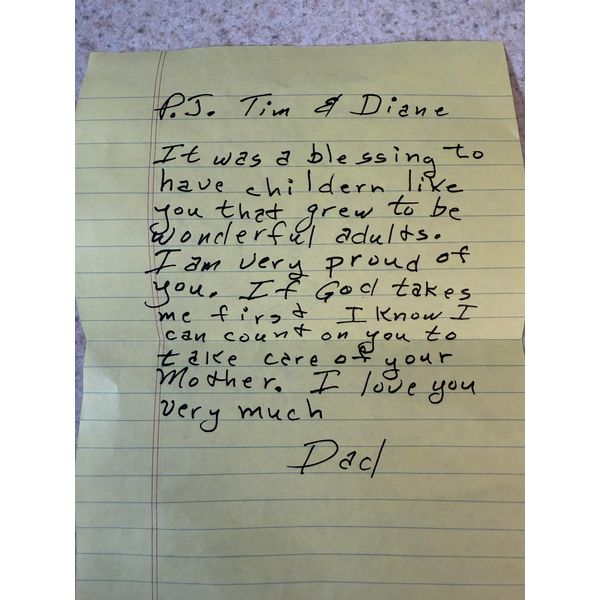 P.J. Tim & Diane
It was a blessing to
have childern like
you that grew to be
wonderful adults.
I am very proud of
you. If God takes
me first I know I
can count on you to
take care of your
Mother. I love you
very much
Dad